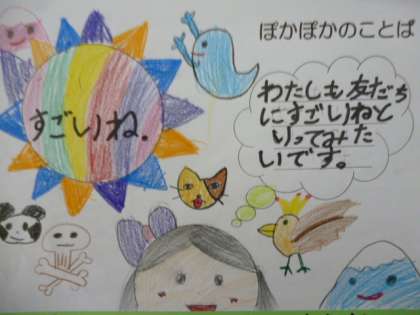 ぽかぽかのことば
すごいね.
わたしも友だち
にすごいねと
いってみた
いです。